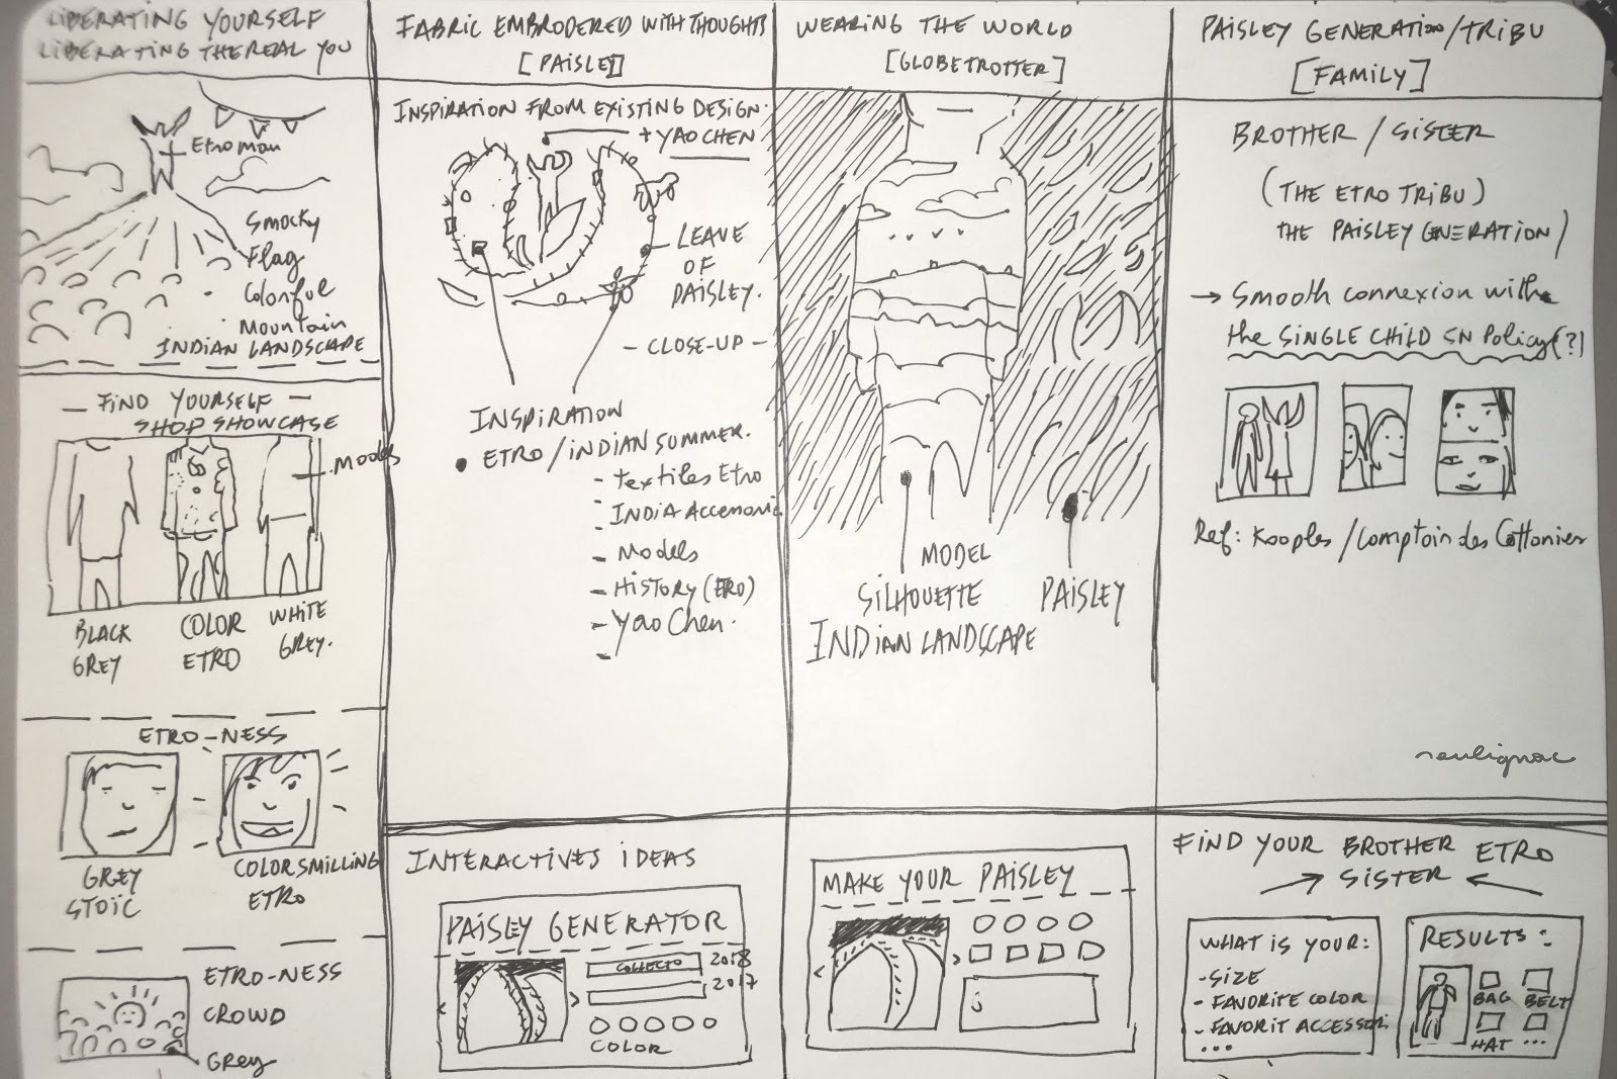 LIBERATING YOURSELF
LIBERATING THE REAL YOU
Etroman
Smocky
Flag
Colorful
Mountain
INDIAN LANDSCAPE
- FIND YOURSELF -
SHOP SHOWCASE
Models
BLACK
GREY
COLOR
ETRO
WHITE
GREY.
ETRO-NESS
GREY
STOIC
COLORSMILLING
ETRO
ETRO-NESS
CROWD
GREY
FABRIC EMBRODERED WITH THOUGHTS
[PAISLEY]
INSPIRATION FROM EXISTING DESIGN.
+ YAO CHEN
LEAVE
OF
PAISLEY.
- CLOSE-UP -
INSPIRATION
• ETRO / INDIAN SUMMER.
- Textiles Etro
- INDIA
- Models
- HISTORY (ETRO)
- Yao Chen.
-
INTERACTIVES IDEAS
PAISLEY GENERATOR
COLLECTO 2018
2017
< >
COLOR
WEARING THE WORLD
[GLOBETROTTER]
MODEL
SILHOUETTE
INDIAN LANDSCAPE
PAISLEY
MAKE YOUR PAISLEY
< >
PAISLEY GENERATION/TRIBU
[FAMILY]
BROTHER / SISTER
(THE ETRO TRIBU)
THE PAISLEY GENERATION)
→ Smooth connexion with
the SINGLE CHILD Policy (?)
Ref: Kooples / Comptoir des Cottonier
FIND YOUR BROTHER ETRO
SISTER
WHAT IS YOUR:
- SIZE
- FAVORITE COLOR
- FAVORIT ACCESSORI
...
RESULTS:
BAG BELT
HAT ...